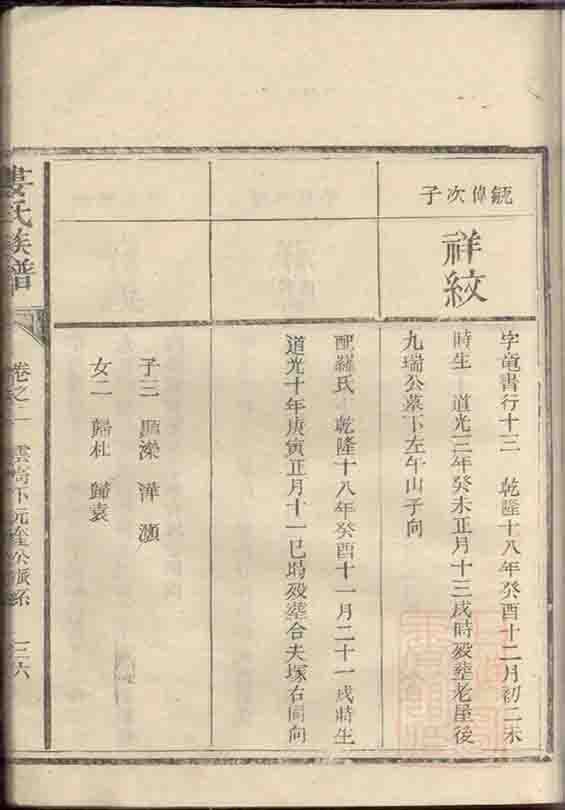 毓偉次子
祥紋
字竜書行十三 乾隆十八年癸酉十二月初二未
時生 道光三年癸未正月十三戌時殁塟老屋後
九瑞公墓下左午山子向
配羅氏 乾隆十八年癸酉十一月二十一戌時生
道光十年庚寅正月十一巳時殁塟合夫塚右同向
子三 顯濚 澕 灝
女二 歸杜 歸袁
婁氏族譜
卷之二
三六